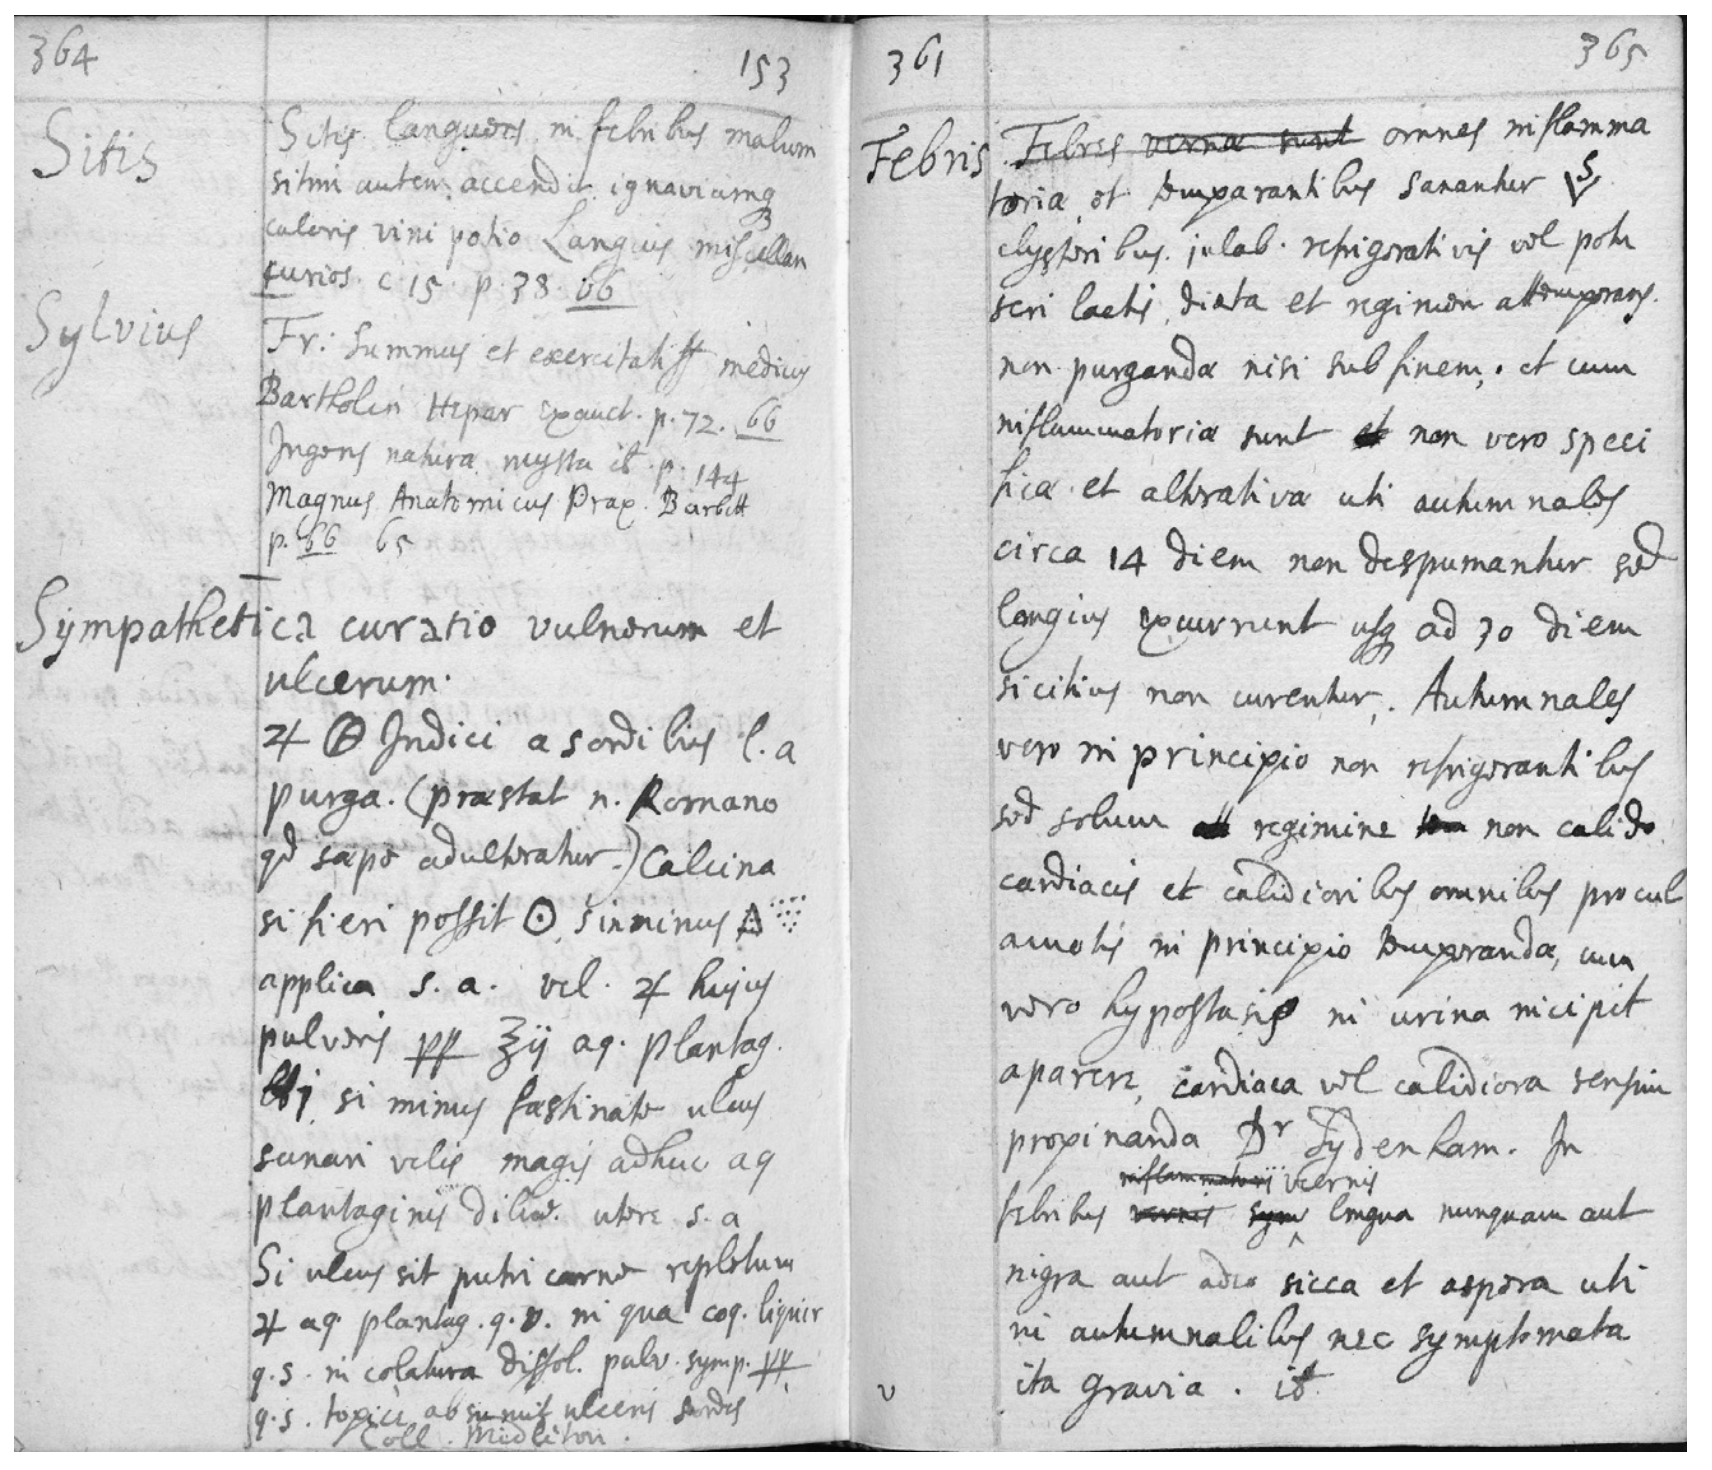 364
153
Sitis
Sitis languores in febribus malum
sitim autem accendit ignaviamq
caloris vini potio Langius miscellan
curios. c. 15. p. 38. 66
Sylvius
Fr: Summus et exercitatiss medicus
Bartholin Hepar exauct. p. 72. 66
Ingens naturæ mysta ib. p. 144
Magnus Anatomicus Prax. Barbett
p. 66 65
Sympathetica curatio vulnerum et
ulcerum.
♃ Indici a sordibus l. a
purga. (præstat n. Romano
qd sæpe adulteratur.) Calcina
si fieri possit ☉ sinminus
applica s. a. vel. ♃ hujus
pulveris pp ʒij aq. plantag.
℔j si minus fæstinate ulcus
sanari velis magis adhuc aq
plantaginis dilue. utere s. a
Si ulcus sit putri carne repletum
♃ aq. plantag. q. v. in qua coq. liquir
q. s. in colatura dissol. pulv. symp. pp
q. s. topice absumit ulceris sordes
Coll. Midliton.
361
365
Febris
Febres vernæ sunt omnes inflamma
toriæ et temperantibus sanantur VS
clysteribus. julab. refrigerativis vel potu
seri lactis, diæta et regimen attemperans.
non purgandæ nisi sub finem. et cum
inflammatoriæ sunt et non vero speci
ficæ et alterativæ uti autumnales
circa 14 diem non despumantur sed
longius excurrunt usq ad 30 diem
si citius non curentur. Autumnales
vero in principio non refrigerantibus
sed solum regimine non calido
cardiacis et calidioribus omnibus procul
amotis in principio temperandæ, cum
vero hypostasis in urina incipit
aparere, cardiaca vel calidiora sensim
propinanda Dr Sydenham. In
inflammatoriis vernis
febribus vernis sym lingua nunquam aut
nigra aut adeo sicca et aspera uti
in autumnalibus nec symptomata
ita gravia. ib
v